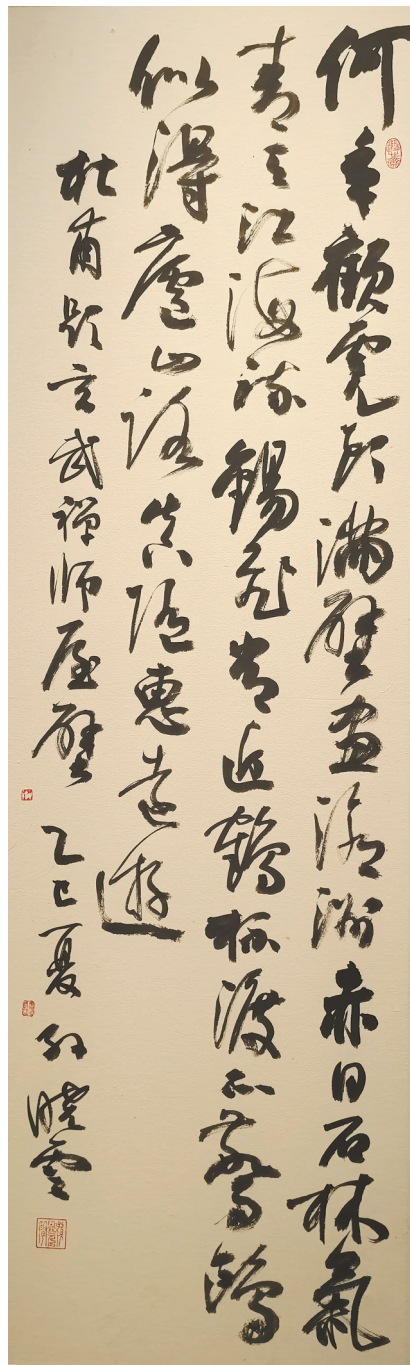 何年顧虎頭滿壁畫滄洲赤日石林氣
青天江海流錫飛常近鶴杯渡不驚鷗
似得廬山路真隨惠遠遊
杜甫題玄武禪師屋壁 乙巳夏 孫曉雲